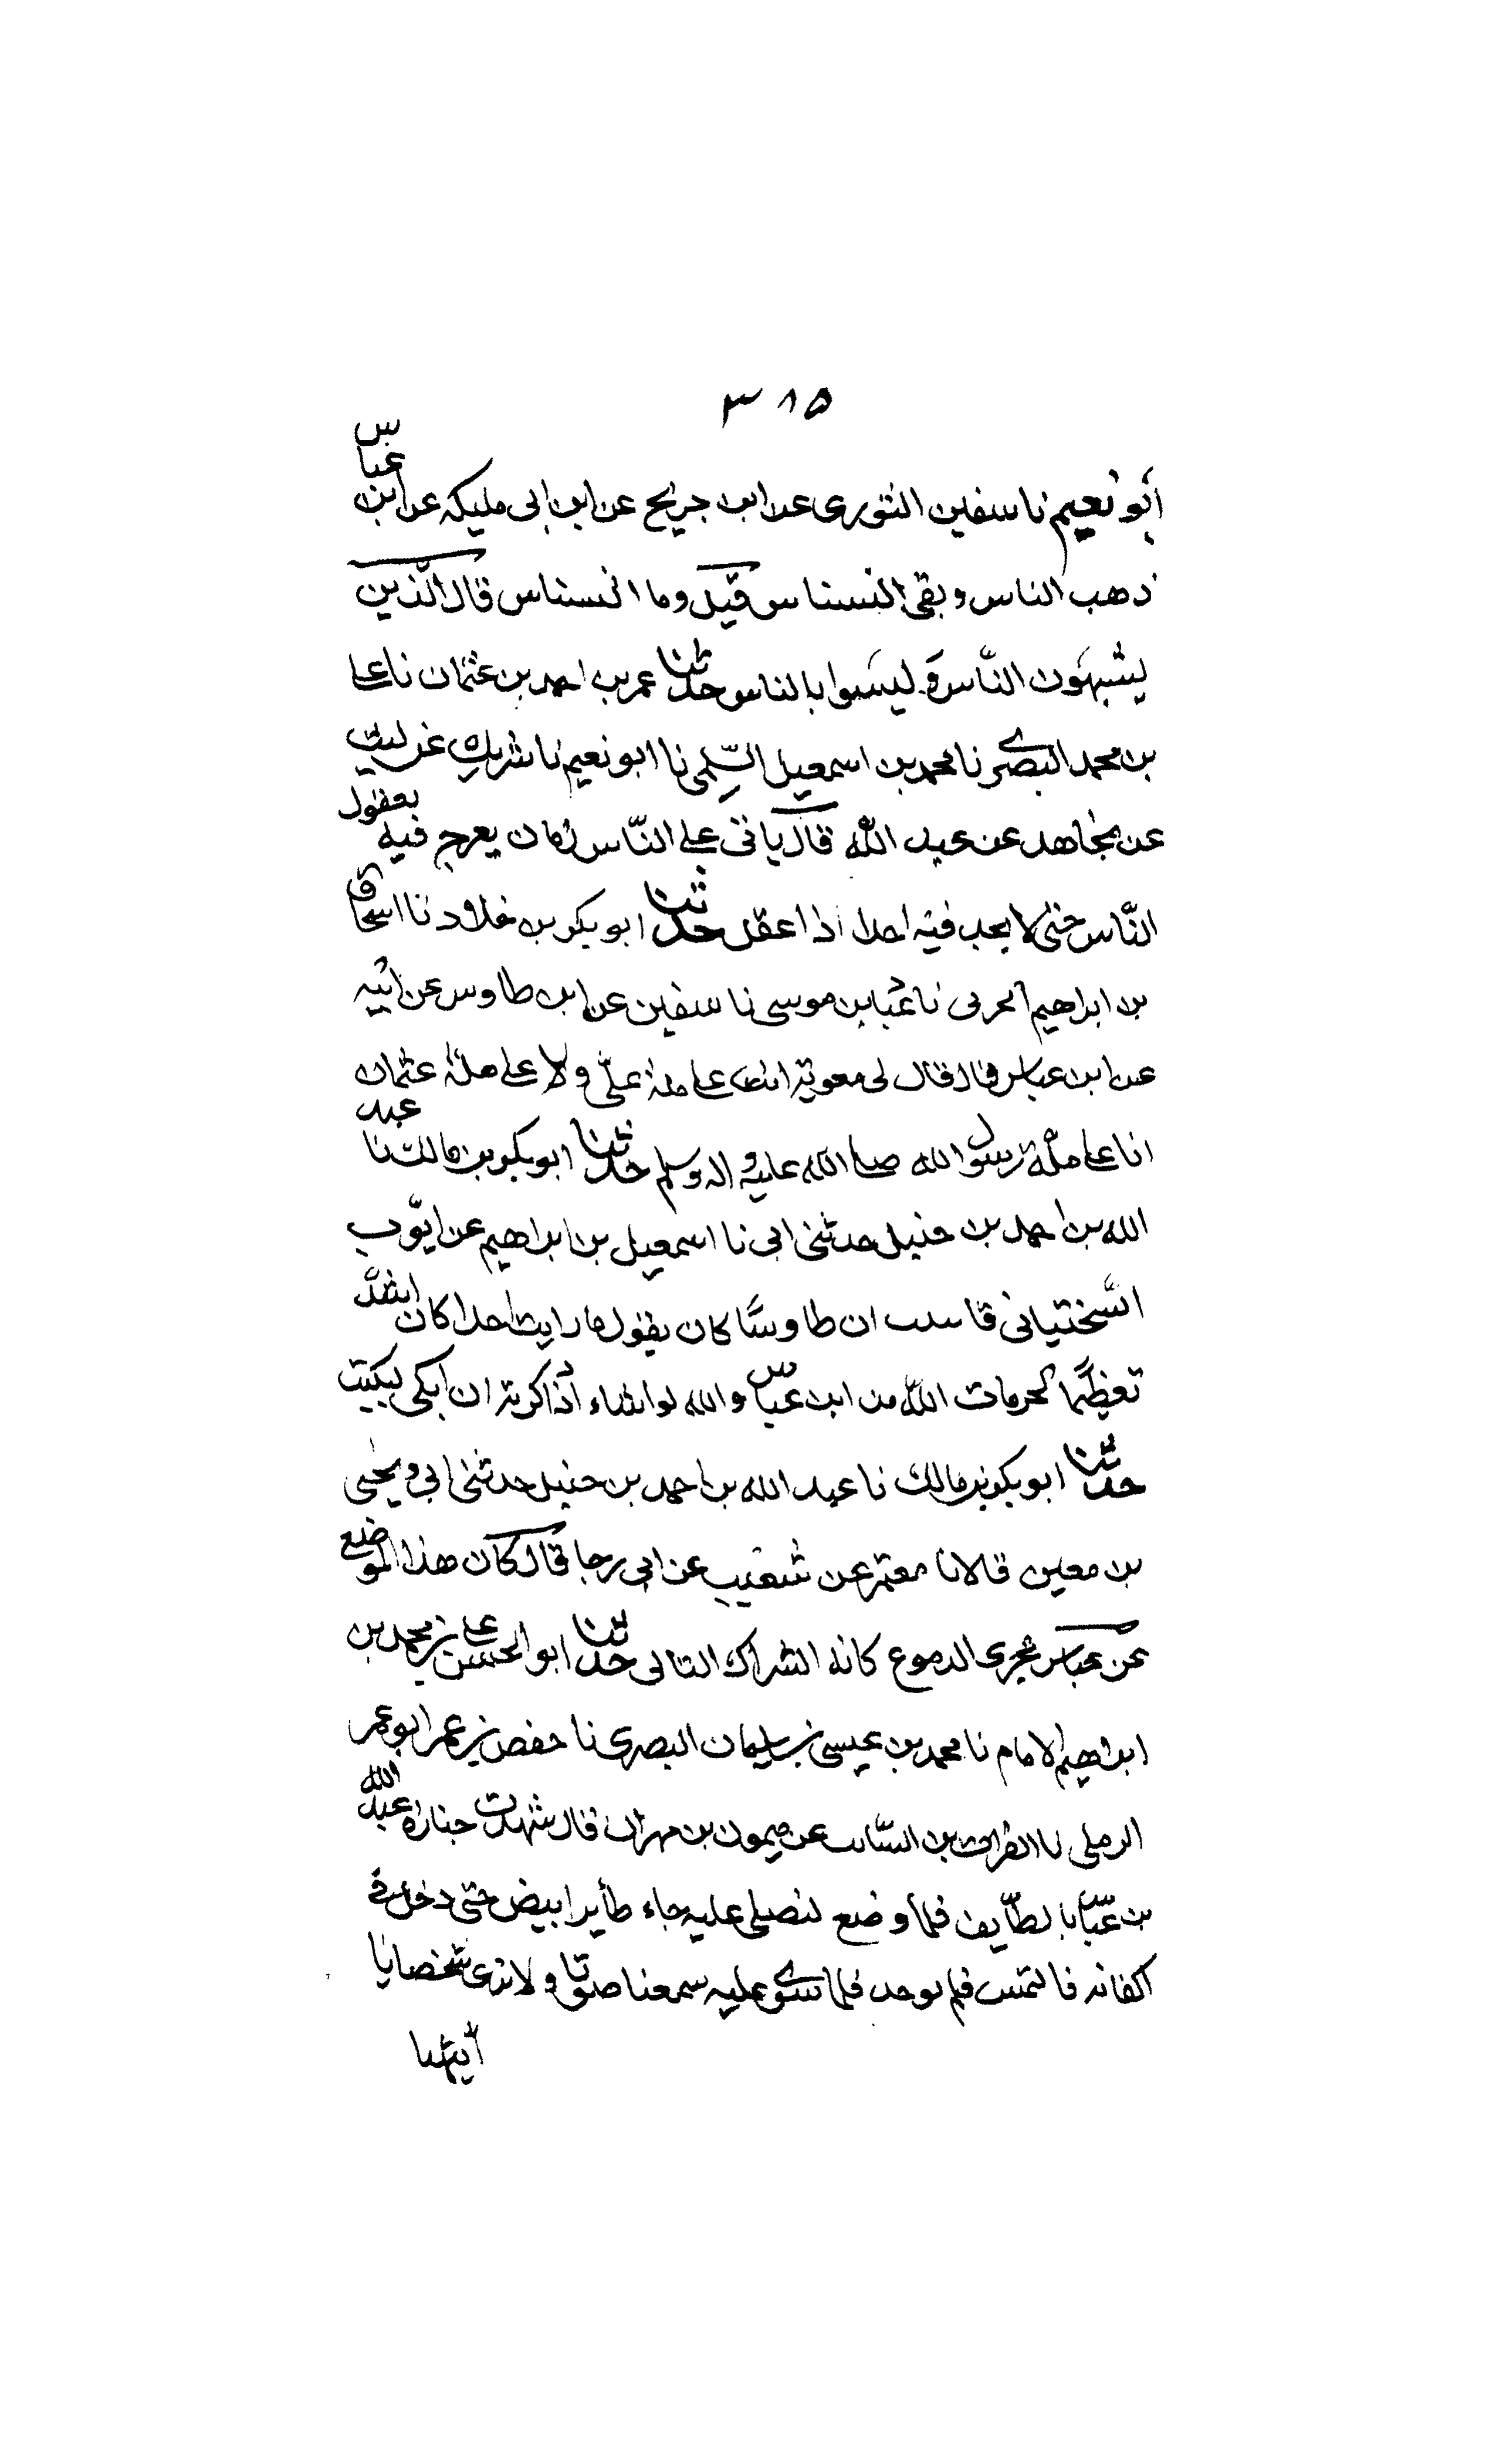 ٣٨٥
أبو نعيم نا سفين الثورى عن ابن جريج عن ابن ابى مليكه عن ابن عباس
ذهب الناس وبقى النسناس قيل وما النسناس قال الذين
يشبهون الناس وليسوا بالناس حدثنا عمر بن احمد بن عثمان نا على
بن محمد البصرى نا محمد بن اسمعيل السلمى نا ابو نعيم نا شريك عن ليث
عن مجاهد عن عبد الله قال ياتى على الناس زمان يعرج فيه بعقول
الناس حتى لا يجد فيه احدا ذا عقل حدثنا ابو بكر بن خلاد نا اسحاق
بن ابراهيم الحربى نا عبد بن موسى نا سفين عن ابن طاوس عن ابيه
عن ابن عباس قال قال لى معوية انت على ملة على ولا على ملة عثمان
انا على ملة رسول الله صلى الله عليه واله وسلم حدثنا ابو بكر بن مالك نا عبد
الله بن احمد بن حنبل حدثنى ابى نا اسمعيل بن ابراهيم عن ايّوب
السّختيانى ان طاوسًا كان يقول ما رايت احدا كان اشدّ
تعظيمًا لحرمات الله من ابن عباس والله لو اشاء اذا كرته ان ابكى لبكيت
حدثنا ابو بكر بن مالك نا عبد الله بن احمد بن حنبل حدثنى ابى و يحيى
بن معين قالا نا معتمر عن شعيب عن ابى رجا قال كان هذا الموضع
من عباس مجرى الدموع كانه الشراك البالى حدثنا ابو الحسن على بن محمد بن
ابراهيم الامام نا محمد بن عيسى بن سليمان البصرى نا حفص بن عمر ابو عمر
الرملى نا الفرات بن السائب عن ميمون بن مهران قال شهدت جنازة عبد الله
بن عبّاس بالطّايف فلما وضع لنصلى عليه جاء طأير ابيض حتى دخل فى
اكفانه فالتمس فلم يوجد فلما سوى عليه سمعنا صوتا ولا نرى شخصا يا
أيتها